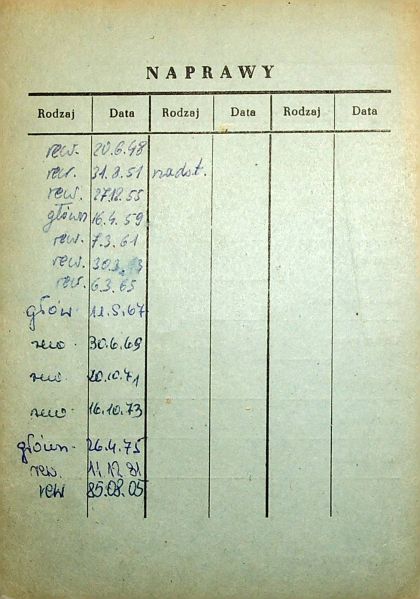 NAPRAWY
Rodzaj Data Rodzaj Data Rodzaj Data
rew. 20.6.48
rew. 31.8.51 nadst.
rew. 27.12.55
główn 16.4.59
rew. 7.3.61
rew. 30.3.
rew. 6.3.65
głów. 11.5.67
rew. 30.6.69
rew. 20.10.71
rew. 16.10.73
główn. 26.4.75
rew. 11.12.81
rew 85.08.05